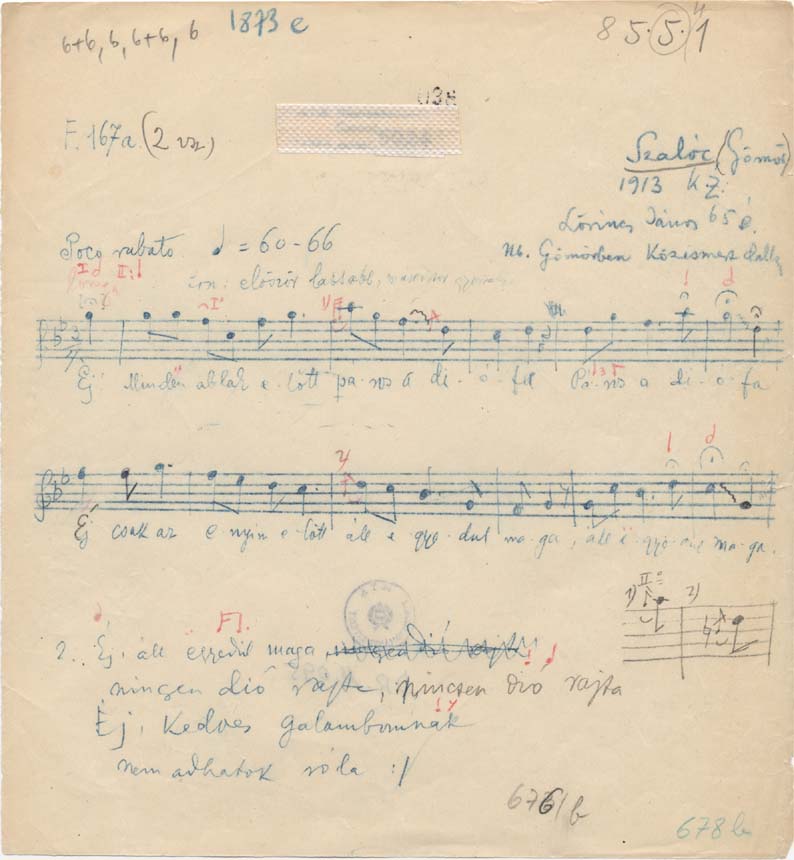 6+6, 6, 6+6, 6
1873 e
8 5·5·1
F. 167a. (2 vsz)
Szalóc (Gömör)
1913 KZ.
Lőrincz János 65 é.
Nb. Gömörben közismert dallam
Poco rubato = 60-66
először lassabb,
Ej Minden ablak e-lőtt pá-ros a di-ó-fa Pá-ros a di-o-fa
Ej csak az e-nyim e-lőtt áll e-gye-dul ma-ga, áll e-gye-dul ma-ga.
1) II 2)
2. Ej, áll egyedül maga
nincsen dió rajta, nincsen dió rajta
Ej, Kedves galambomnak
nem adhatok róla :/
676/b
678 b